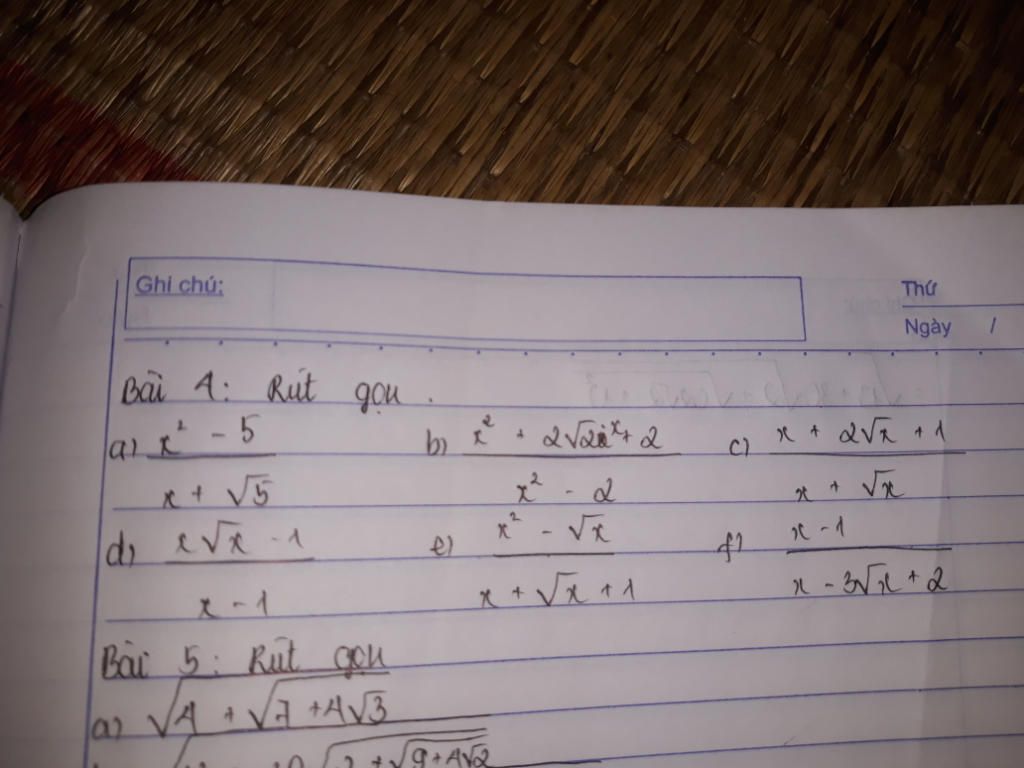 Ghi chú:
Thứ
Ngày /
Bài 4: Rút gọn.
a) (x² - 5)/(x + √5) b) (x² + 2√2x + 2)/(x² - 2) c) (x + 2√x + 1)/(x + √x)
d) (x√x - 1)/(x - 1) e) (x² - √x)/(x + √x + 1) f) (x - 1)/(x - 3√x + 2)
Bài 5: Rút gọn
a) √(4 + √(7 + 4√3))
√(9 + 4√2)